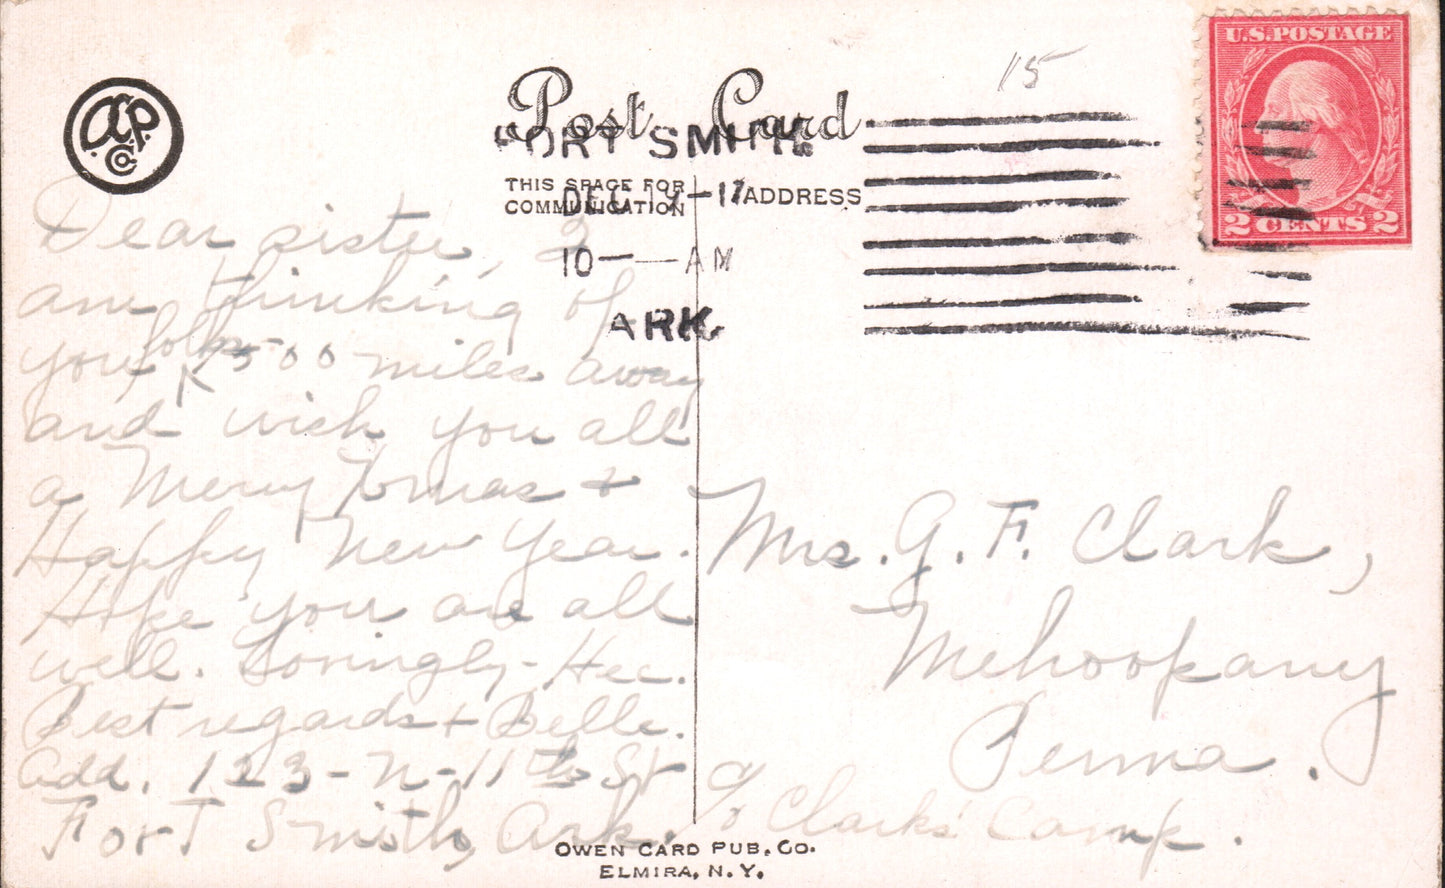 15
U.S.POSTAGE
2 CENTS 2
A.C.P.
Co
Post Card.
FORT SMITH
THIS SPACE FOR
COMMUNICATION
ADDRESS
DEC 19-17
10 — AM
ARK.
Dear sister, I
am thinking of
you folks 1500 miles away
and wish you all
a Merry Xmas +
Happy New Year.
Hope you are all
well. Lovingly - Hec.
Best regards + Belle.
Add. 123-N-11th St
Fort Smith, Ark.
Mrs. G. F. Clark,
Mehoopany
Penna.
c/o Clarks' Camp.
OWEN CARD PUB. CO.
ELMIRA, N.Y.